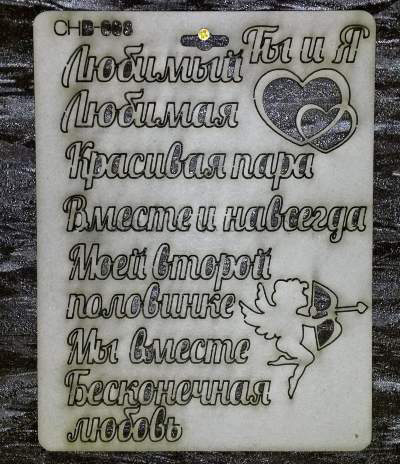 СНВ-668
Ты и Я
Любимый
Любимая
Красивая пара
Вместе и навсегда
Моей второй
половинке
Мы вместе
Бесконечная
любовь